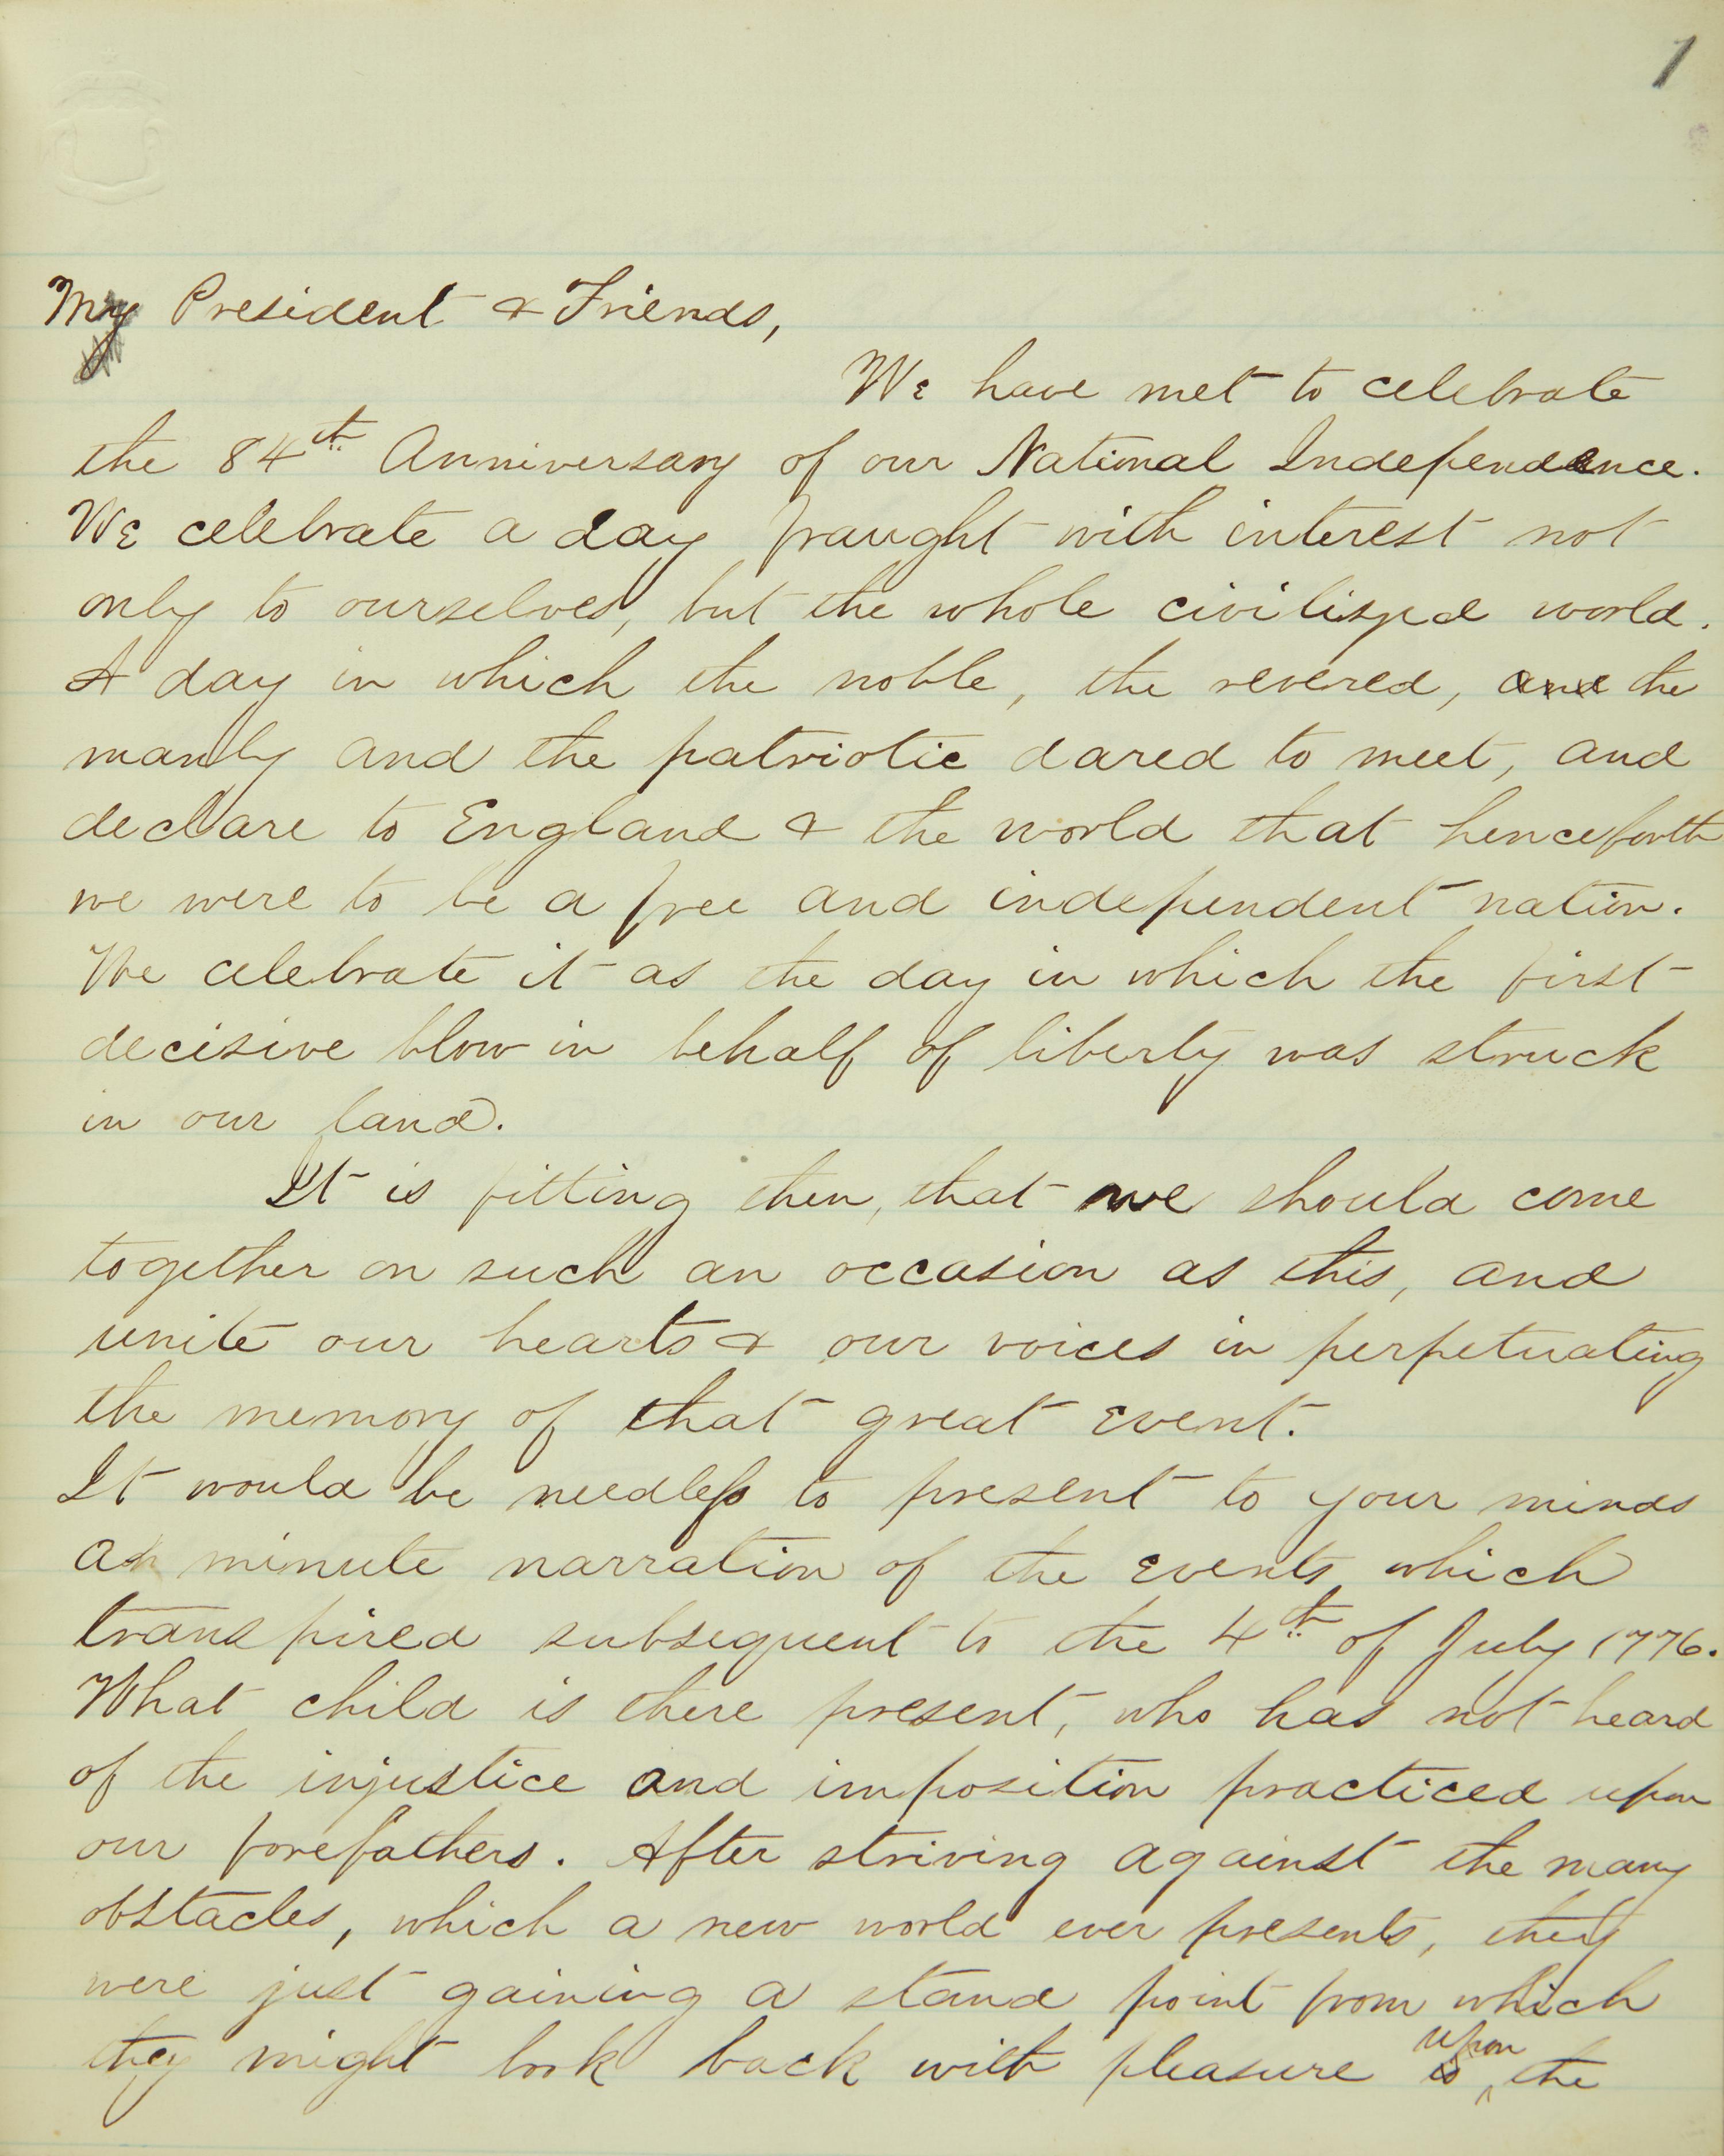 1
My President & Friends,
We have met to celebrate
the 84th Anniversary of our National Independence.
We celebrate a day fraught with interest not
only to ourselves, but the whole civilized world.
A day in which the noble, the revered, and the
manly and the patriotic dared to meet, and
declare to England & the world that henceforth
we were to be a free and independent nation.
We celebrate it as the day in which the first
decisive blow in behalf of liberty was struck
in our land.
It is fitting then, that we should come
together on such an occasion as this, and
unite our hearts & our voices in perpetuating
the memory of that great event.
It would be needless to present to your minds
a minute narration of the events which
transpired subsequent to the 4th of July 1776.
What child is there present, who has not heard
of the injustice and imposition practiced upon
our forefathers. After striving against the many
obstacles, which a new world ever presents, they
were just gaining a stand point from which
they might look back with pleasure upon the